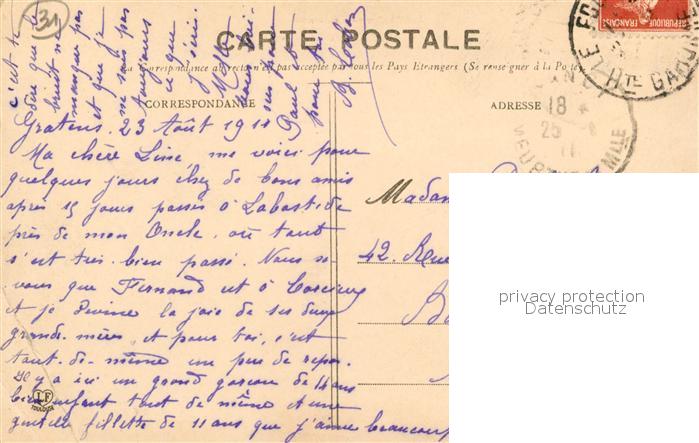 31
CARTE POSTALE
La Correspondance au recto n'est pas acceptée par tous les Pays Etrangers (Se renseigner à la Poste)
CORRESPONDANCE
ADRESSE
RÉPUBLIQUE FRANÇAISE
Hte GARONNE
18
25
11
MEURTHE
Gratens, 23 Août 1911
Ma chère Line, me voici pour
quelques jours chez de bons amis
après 15 jours passés à Labastide
près de mon Oncle, où tout
s'est très bien passé. Nous
vous que Fernand est à
et je devine la joie de ses deux
grands-mères, et pour toi, c'est
tout de même un peu de repos.
Il y a ici un grand garçon de 14 ans
bien enfant tout de même et une
gentille fillette de 11 ans que j'aime beaucoup
c'est te
dire que le
bruit ne
manque pas
et que je
ne suis pas
toujours
à ce que
j'écris
Paul
Madam
42. Rue
LF
TOULOUSE
privacy protection
Datenschutz